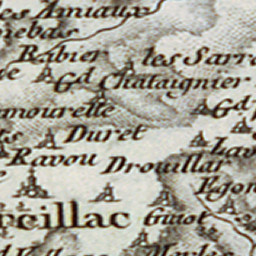 les Amiaux
Rabier les Sarre
Gd Chataignier
amourette Gd
Duret
Ravou Drouillar
Egon
rcillac Guiot